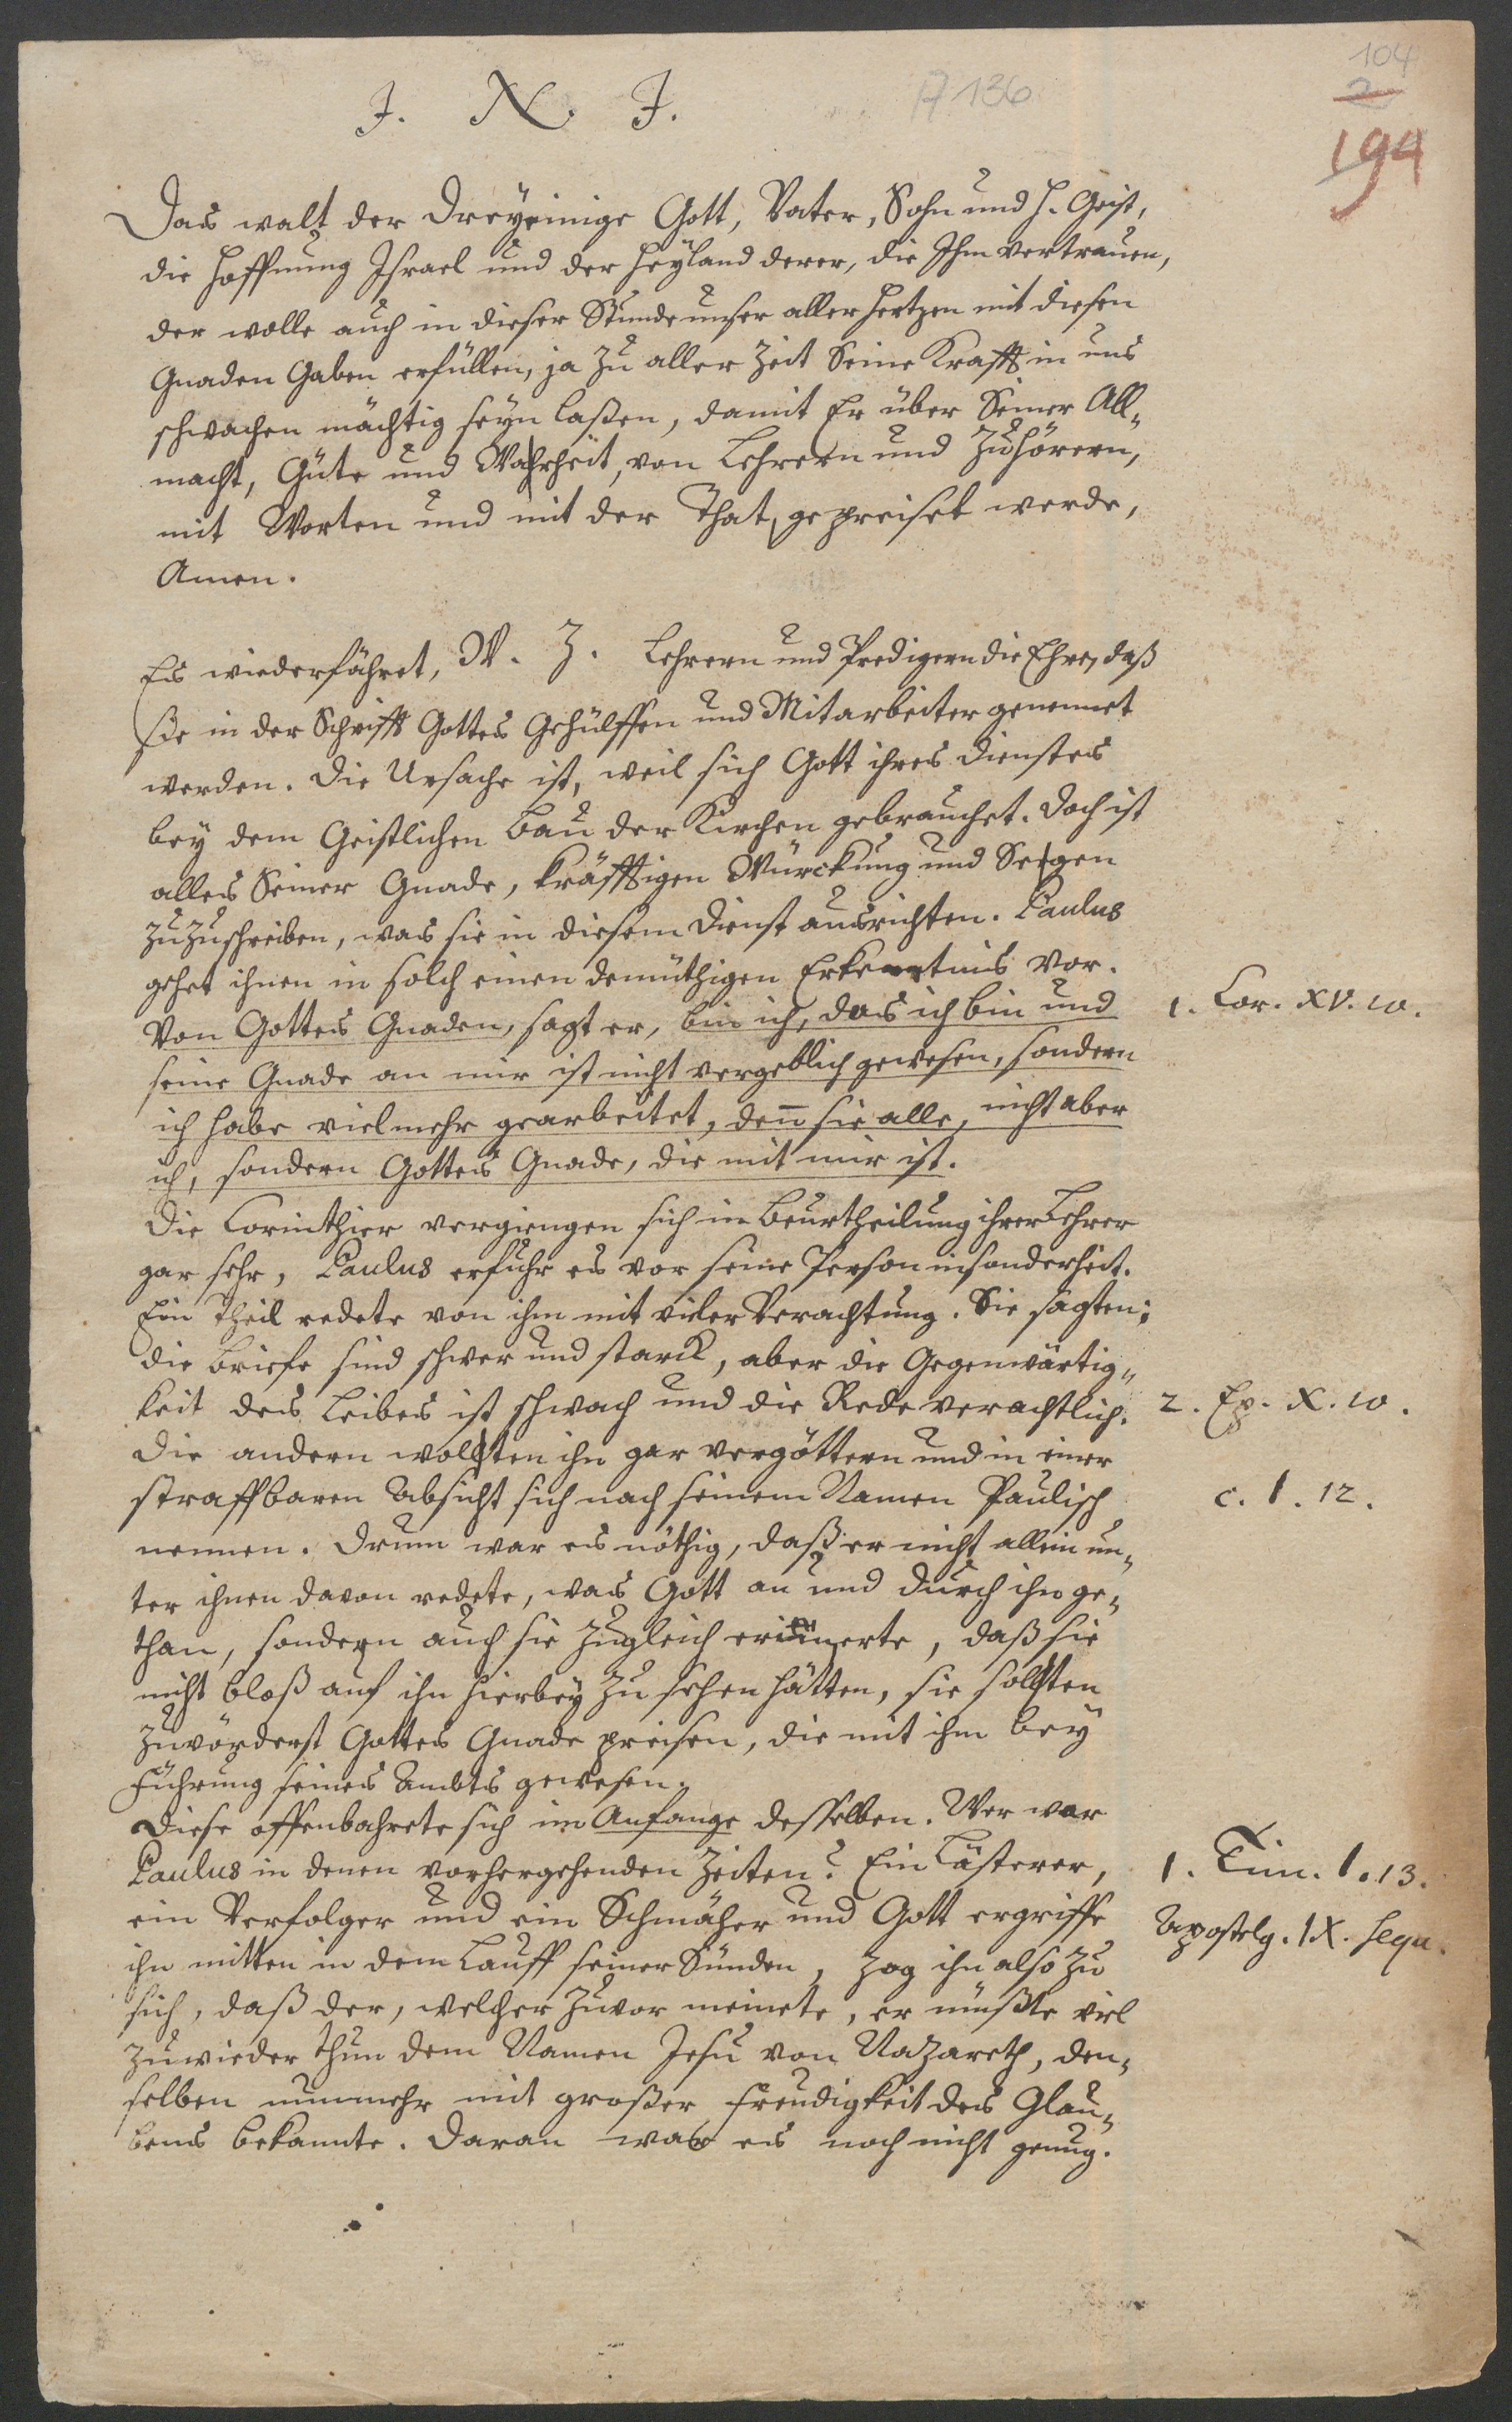 104
2
194
A 136
J. N. J.
Das walt der Dreyeinige Gott, Vater, Sohn und H. Geist,
die Hoffnung Israel und der Heyland derer, die Ihm vertrauen,
der wolle auch in dieser Stunde unser aller Hertzen mit diesen
Gnaden Gaben erfüllen, ja zu aller Zeit Seine Krafft in uns
schwachen mächtig seyn laßen, damit Er über Seiner All„
macht, Güte und Wahrheit, von Lehrern und Zuhörern,
mit Worten und mit der That, gepreiset werde,
Amen.
Es wiederfähret, W. Z. Lehrern und Predigern die Ehre, daß
sie in der Schrifft Gottes Gehülffen und Mitarbeiter genennet
werden. Die Ursache ist, weil sich Gott ihres Dienstes
bey dem Geistlichen Bau der Kirchen gebrauchet. Doch ist
alles Seiner Gnade, kräfftigen Würckung und Segen
zuzuschreiben, was sie in diesem Dienst ausrichten. Paulus
gehet ihnen in solch einen demüthigen Erkentnis vor.
Von Gottes Gnaden, sagt er, bin ich, das ich bin und
1. Cor. XV. 10.
seine Gnade an mir ist nicht vergeblich gewesen, sondern
ich habe vielmehr gearbeitet, den̄ sie alle, nicht aber
ich, sondern Gottes Gnade, die mit mir ist.
Die Corinthier vergiengen sich in Beurtheilung ihrer Lehrer
gar sehr, Paulus erfuhr es vor seine Person insonderheit.
Ein Theil redete von ihm mit vieler Verachtung. Sie sagten:
die Briefe sind schwer und starck, aber die Gegenwärtig„
keit des Leibes ist schwach und die Rede verachtlich.
2. Ep. X. 10.
Die andern wollten ihn gar vergöttern und in einer
straffbaren Absicht sich nach seinem Namen Paulisch
c. I. 12.
nennen. Drum war es nöthig, daß er nicht allein un„
ter ihnen davon redete, was Gott an und durch ihn ge„
than, sondern auch sie zugleich erinnerte, daß sie
nicht bloß auf ihn hierbey zu sehen hätten, sie sollten
zuvörderst Gottes Gnade preisen, die mit ihm bey
Führung seines Ambts gewesen.
Diese offenbahrete sich im Anfange desselben. Wer war
Paulus in denen vorhergehenden Zeiten? Ein Lästerer,
1. Tim. I. 13.
ein Verfolger und ein Schmäher und Gott ergriffe
Apostelg. IX. sequ.
ihn mitten in dem Lauff seiner Sünden, zog ihn also zu
sich, daß der, welcher zuvor meinete, er müßte viel
zuwieder thun dem Namen Jesu von Nazareth, den„
selben nunmehr mit großer Freudigkeit des Glau„
bens bekannte. Daran war es noch nicht genug.